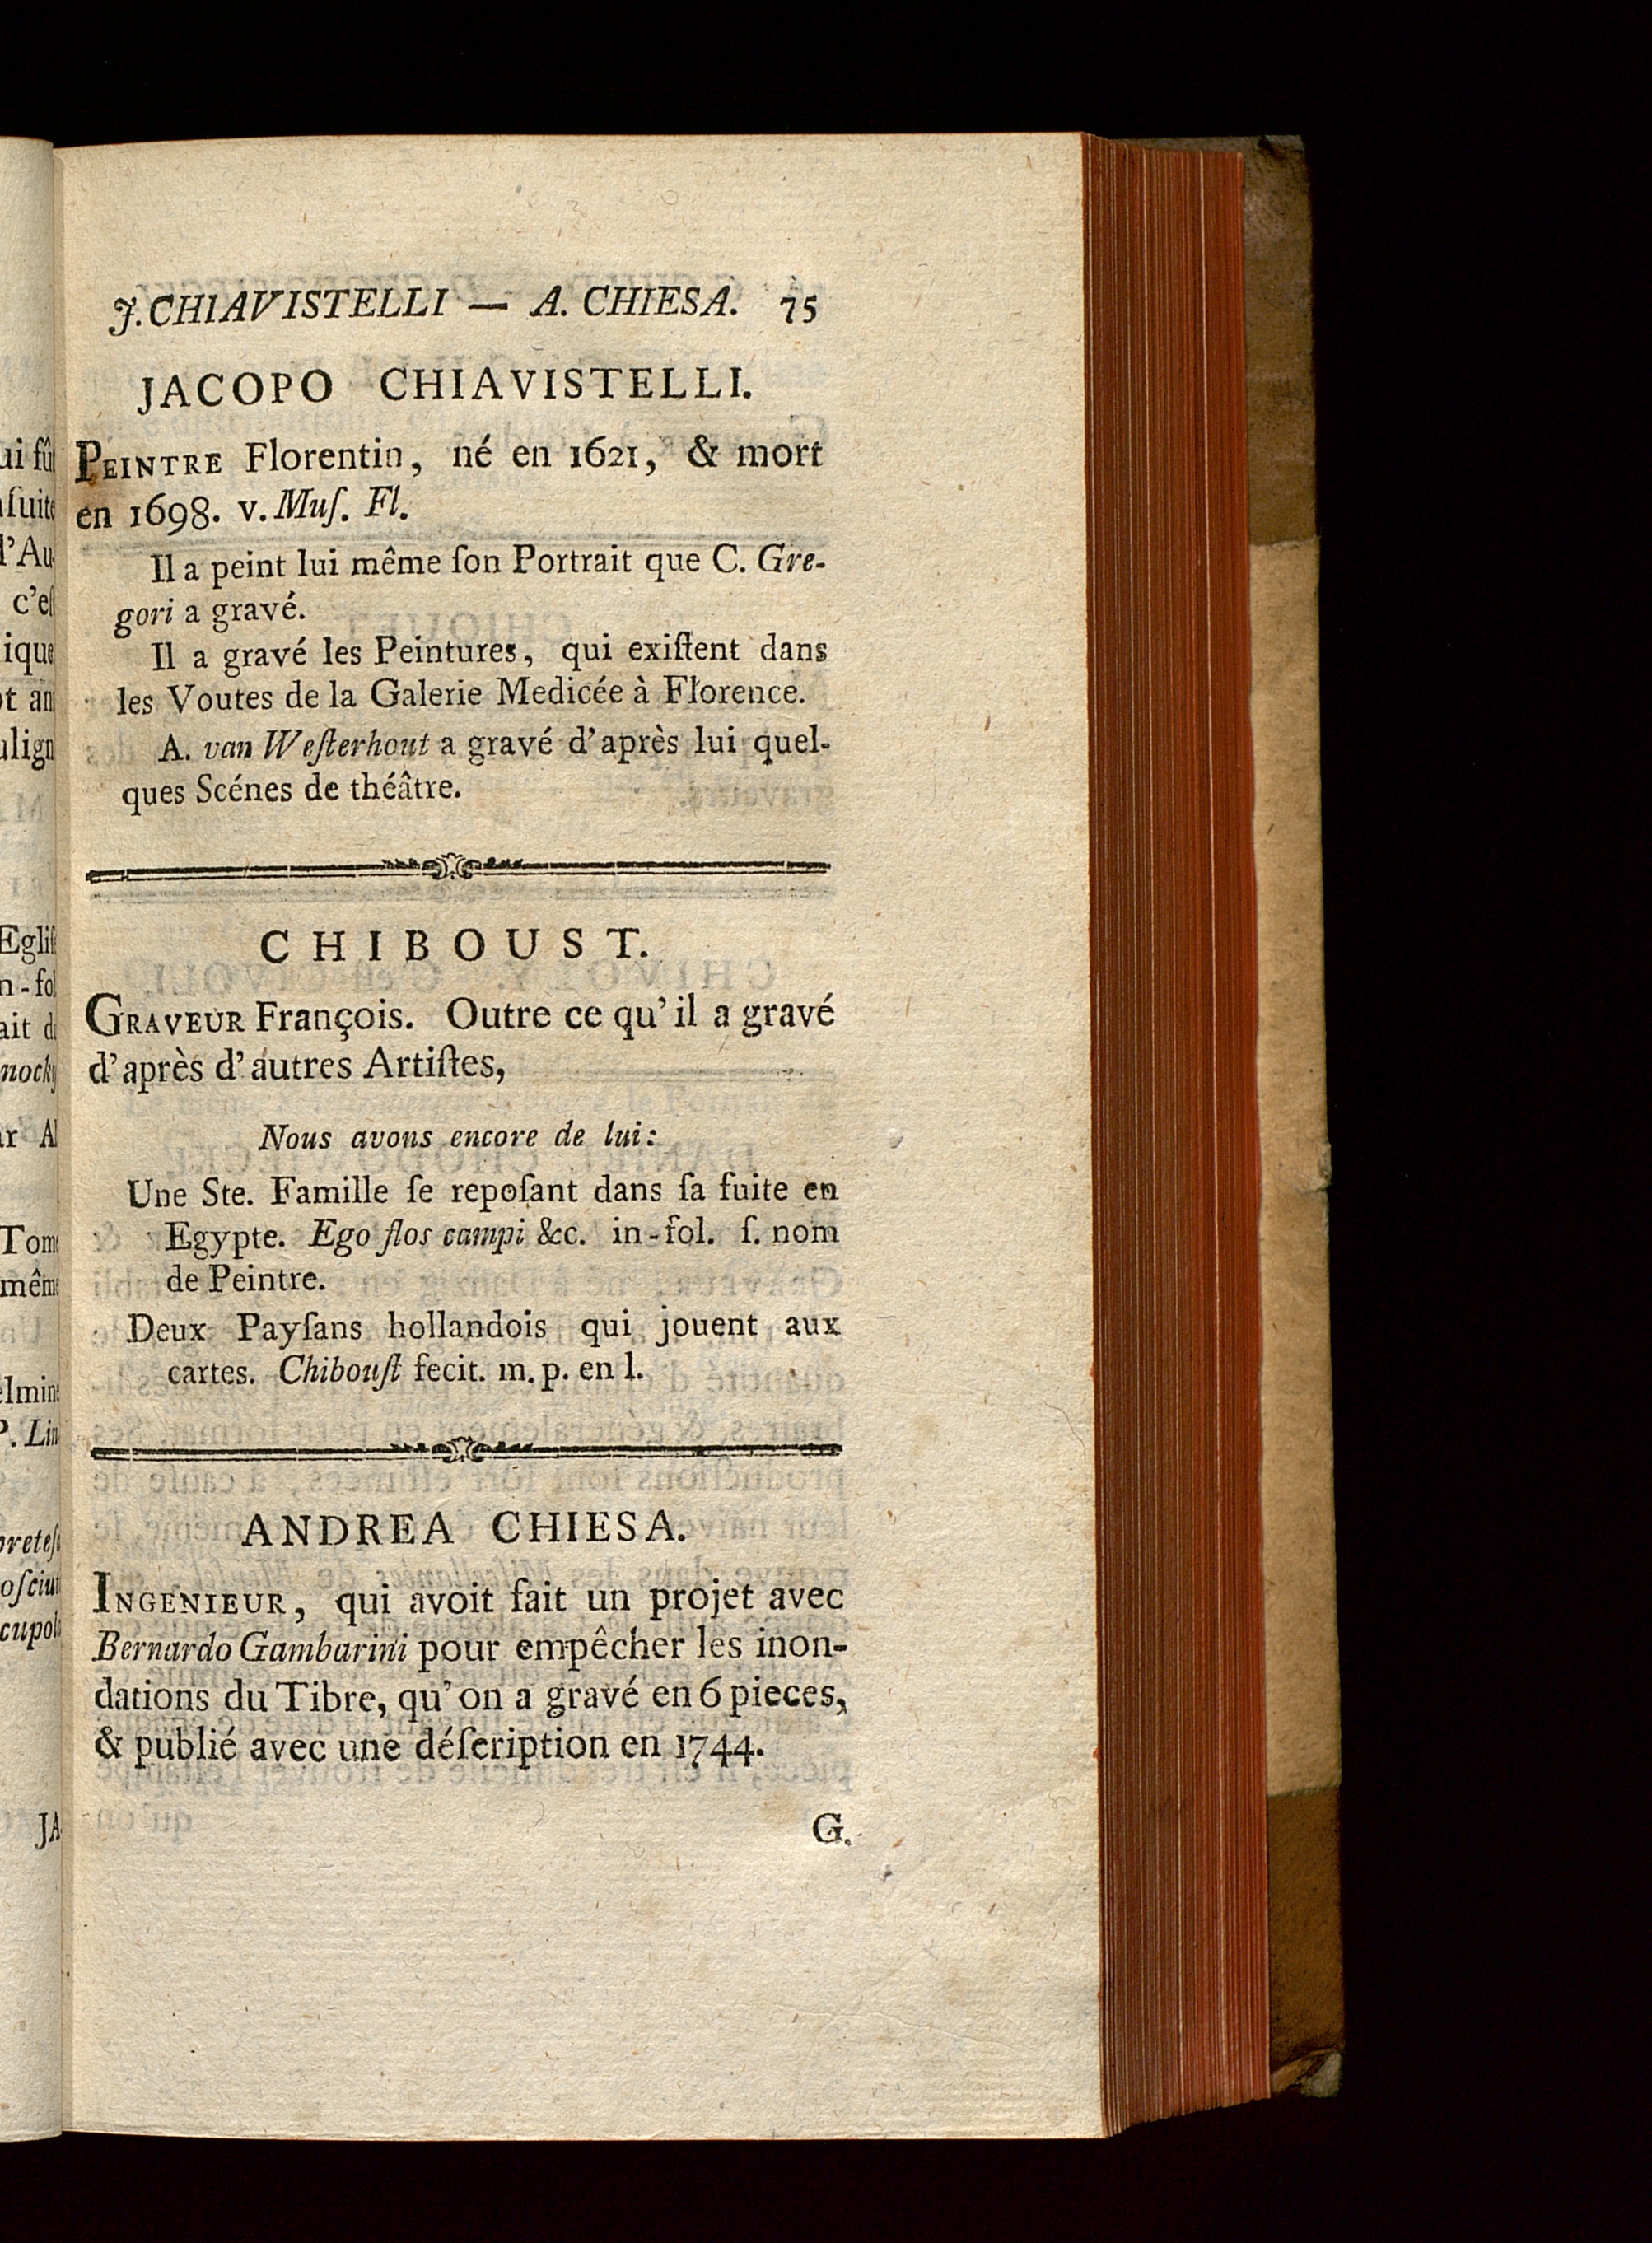 J. CHIAVISTELLI — A. CHIESA. 75
JACOPO CHIAVISTELLI.
PEINTRE Florentin, né en 1621, & mort
en 1698. v. Muſ. Fl.
Il a peint lui même ſon Portrait que C. Gre-
gori a gravé.
Il a gravé les Peintures, qui exiſtent dans
les Voutes de la Galerie Medicée à Florence.
A. van Weſterhout a gravé d'après lui quel-
ques Scénes de théâtre.
CHIBOUST.
GRAVEUR François. Outre ce qu'il a gravé
d'après d'autres Artiſtes,
Nous avons encore de lui:
Une Ste. Famille ſe repoſant dans ſa fuite en
Egypte. Ego flos campi &c. in-fol. ſ. nom
de Peintre.
Deux Payſans hollandois qui jouent aux
cartes. Chibouſt fecit. m. p. en l.
ANDREA CHIESA.
INGENIEUR, qui avoit fait un projet avec
Bernardo Gambarini pour empêcher les inon-
dations du Tibre, qu'on a gravé en 6 pieces,
& publié avec une déſcription en 1744.
G.